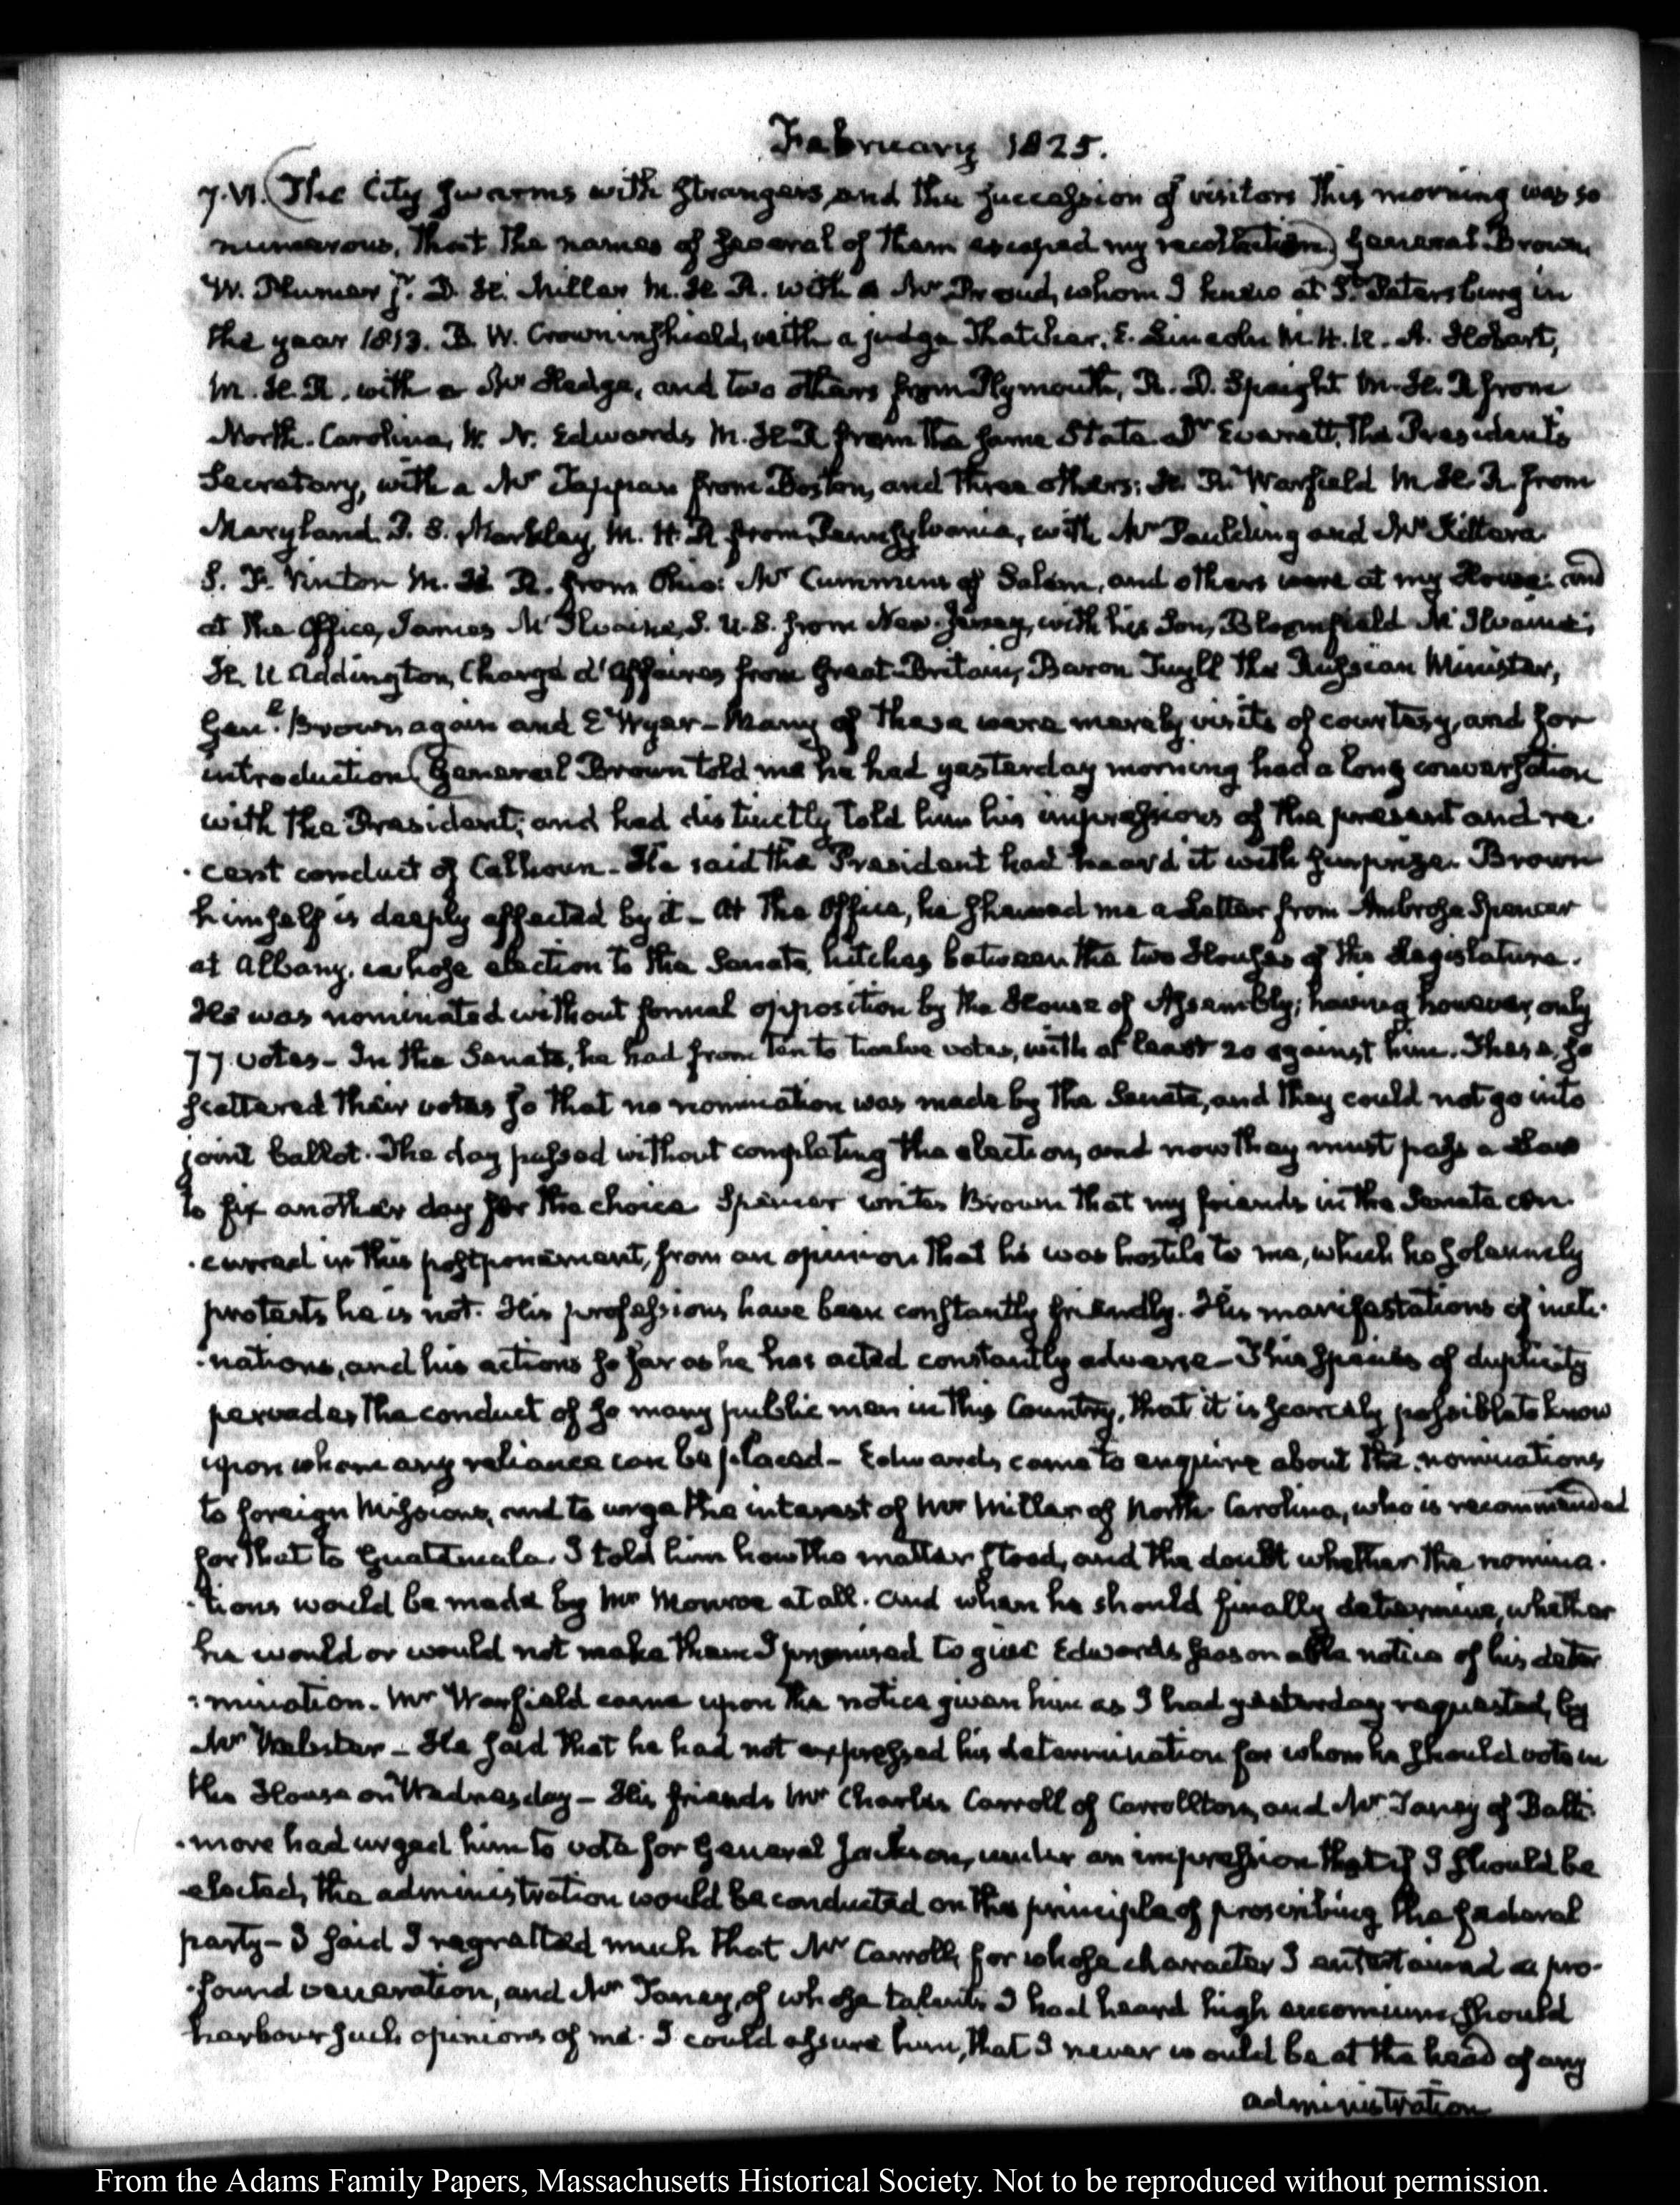 February 1825.
7. VI. The City swarms with strangers, and the succession of visitors this morning was so
numerous, that the names of several of them escaped my recollection. General Brown,
W. Plumer jr. D. H. Miller M. H. R. with a Mr Proud, whom I knew at St. Petersburg in
the year 1813. B. W. Crowninshield, with a judge Thatcher, E. Lincoln M. H. R. A. Hobart,
M. H. R. with a Mr Hedge, and two others from Plymouth, R. D. Spaight M. H. R from
North-Carolina, W. N. Edwards M. H. R from the same State. Dr Everett, the President's
Secretary, with a Mr Tappan from Boston, and three others; H. R. Warfield M. H. R. from
Maryland. P. S. Markley, M. H. R from Pennsylvania, with Mr Paulding and Mr Kittera
S. F. Vinton M. H. R. from Ohio: Mr Cummins of Salem, and others were at my House: and
at the Office, James McIlvaine, S. U. S. from New-Jersey, with his Son, Bloomfield McIlvaine;
H. U Addington, Chargé d'Affaires from Great-Britain, Baron Tuyll the Russian Minister,
Genl. Brown again and E Wyer— Many of these were merely visits of courtesy, and for
introduction. General Brown told me he had yesterday morning had a long conversation
with the President; and had distinctly told him his impressions of the present and re-
-cent conduct of Calhoun— He said the President had heard it with surprize. Brown
himself is deeply affected by it— At the Office, he shewed me a Letter from Ambrose Spencer
at Albany, whose election to the Senate, hitches between the two Houses of the Legislature.
He was nominated without formal opposition by the House of Assembly; having however, only
77 votes— In the Senate, he had from ten to twelve votes, with at least 20 against him. These, so
scattered their votes so that no nomination was made by the Senate, and they could not go into
joint ballot. The day passed without completing the election, and now they must pass a Law
to fix another day for the choice Spencer writes Brown that my friends in the Senate con-
-curred in this postponement, from an opinion that he was hostile to me, which he solemnly
protests he is not. His professions have been constantly friendly. His manifestations of incli-
-nations, and his actions so far as he has acted constantly adverse— This species of duplicity
pervades the conduct of so many public men in this Country, that it is scarcely possible to know
upon whom any reliance can be placed— Edwards came to enquire about the nominations
to foreign Missions, and to urge the interest of Mr Miller of North-Carolina, who is recommended
for that to Guatemala. I told him how the matter stood, and the doubt whether the nomina-
-tions would be made by Mr Monroe at all. And when he should finally determine, whether
he would or would not make them I promised to give Edwards seasonable notice of his deter
-mination. Mr Warfield came upon the notice given him as I had yesterday requested, by
Mr Webster— He said that he had not expressed his determination for whom he should vote in
the House on Wednesday— His friends Mr Charles Carroll of Carrollton, and Mr Taney of Balti-
-more had urged him to vote for General Jackson, under an impression that if I should be
elected, the administration would be conducted on the principle of proscribing the federal
party— I said I regretted much that Mr Carroll, for whose character I entertained a pro-
-found veneration, and Mr Taney, of whose talents I had heard high encomiums, should
harbour such opinions of me. I could assure him, that I never would be at the head of any
administration
From the Adams Family Papers, Massachusetts Historical Society. Not to be reproduced without permission.